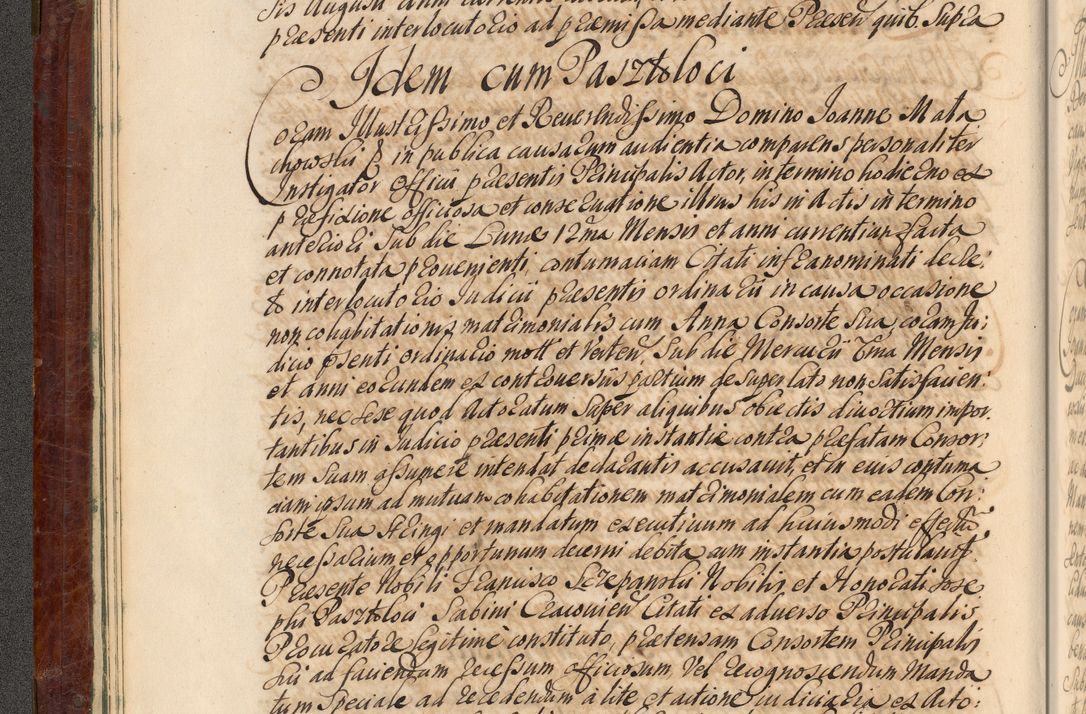 praesenti interlocutorio ad praemissa mediante Praesen quib Supra
Idem cum Pasztoloci
Coram Illustrissimo et Reverendissimo Domino Joanne Mala
chowski in publica causarum audientia comparens personaliter
Instigator Officii praesentis Principalis Actor, in termino hodierno ex
praefixione officiosa et conservatione illius his in Actis in termino
anteriori Sub die Lunae 12ma Mensis et anni currentium facta
et connotata provenienti, contumaciam Citati infranominati decre:
to interlocutorio Judicii praesentis ordinarii in causa occasione
non cohabitationis matrimonialis cum Anna Consorte Sua, coram Ju:
dicio psenti ordinario mott et Verten Sub die Mercurii 7ma Mensis
et anni eorundem ex controversiis partium desuper lato non Satisfacien:
tis, nec sese quod Actoratum Super aliquibus obiectis divortium impor
tantibus in Judicio praesenti primae instantiae contra praefatam Consor:
tem Suam assumere intendat declarantis accusavit, et in eius contuma
ciam ipsum ad mutuam cohabitationem matrimonialem cum eadem Con:
sorte Sua stringi et mandatum executivum ad huiusmodi effectu
necessarium et opportunum decerni debita cum instantia postulavit
Praesente Nobili Francisco Szczepanski Nobilis et Honorati Jose
phi Pasztoloci Sabini Cracovien Citati ex adverso Principalis
Procuratore legitime constituto, praetensam Consortem Principalis
sui ad faciendum recessum officiosum, vel recognoscendum Manda
tum Speciale ad recedendum a lite et actione iudiciaria ex Acto: